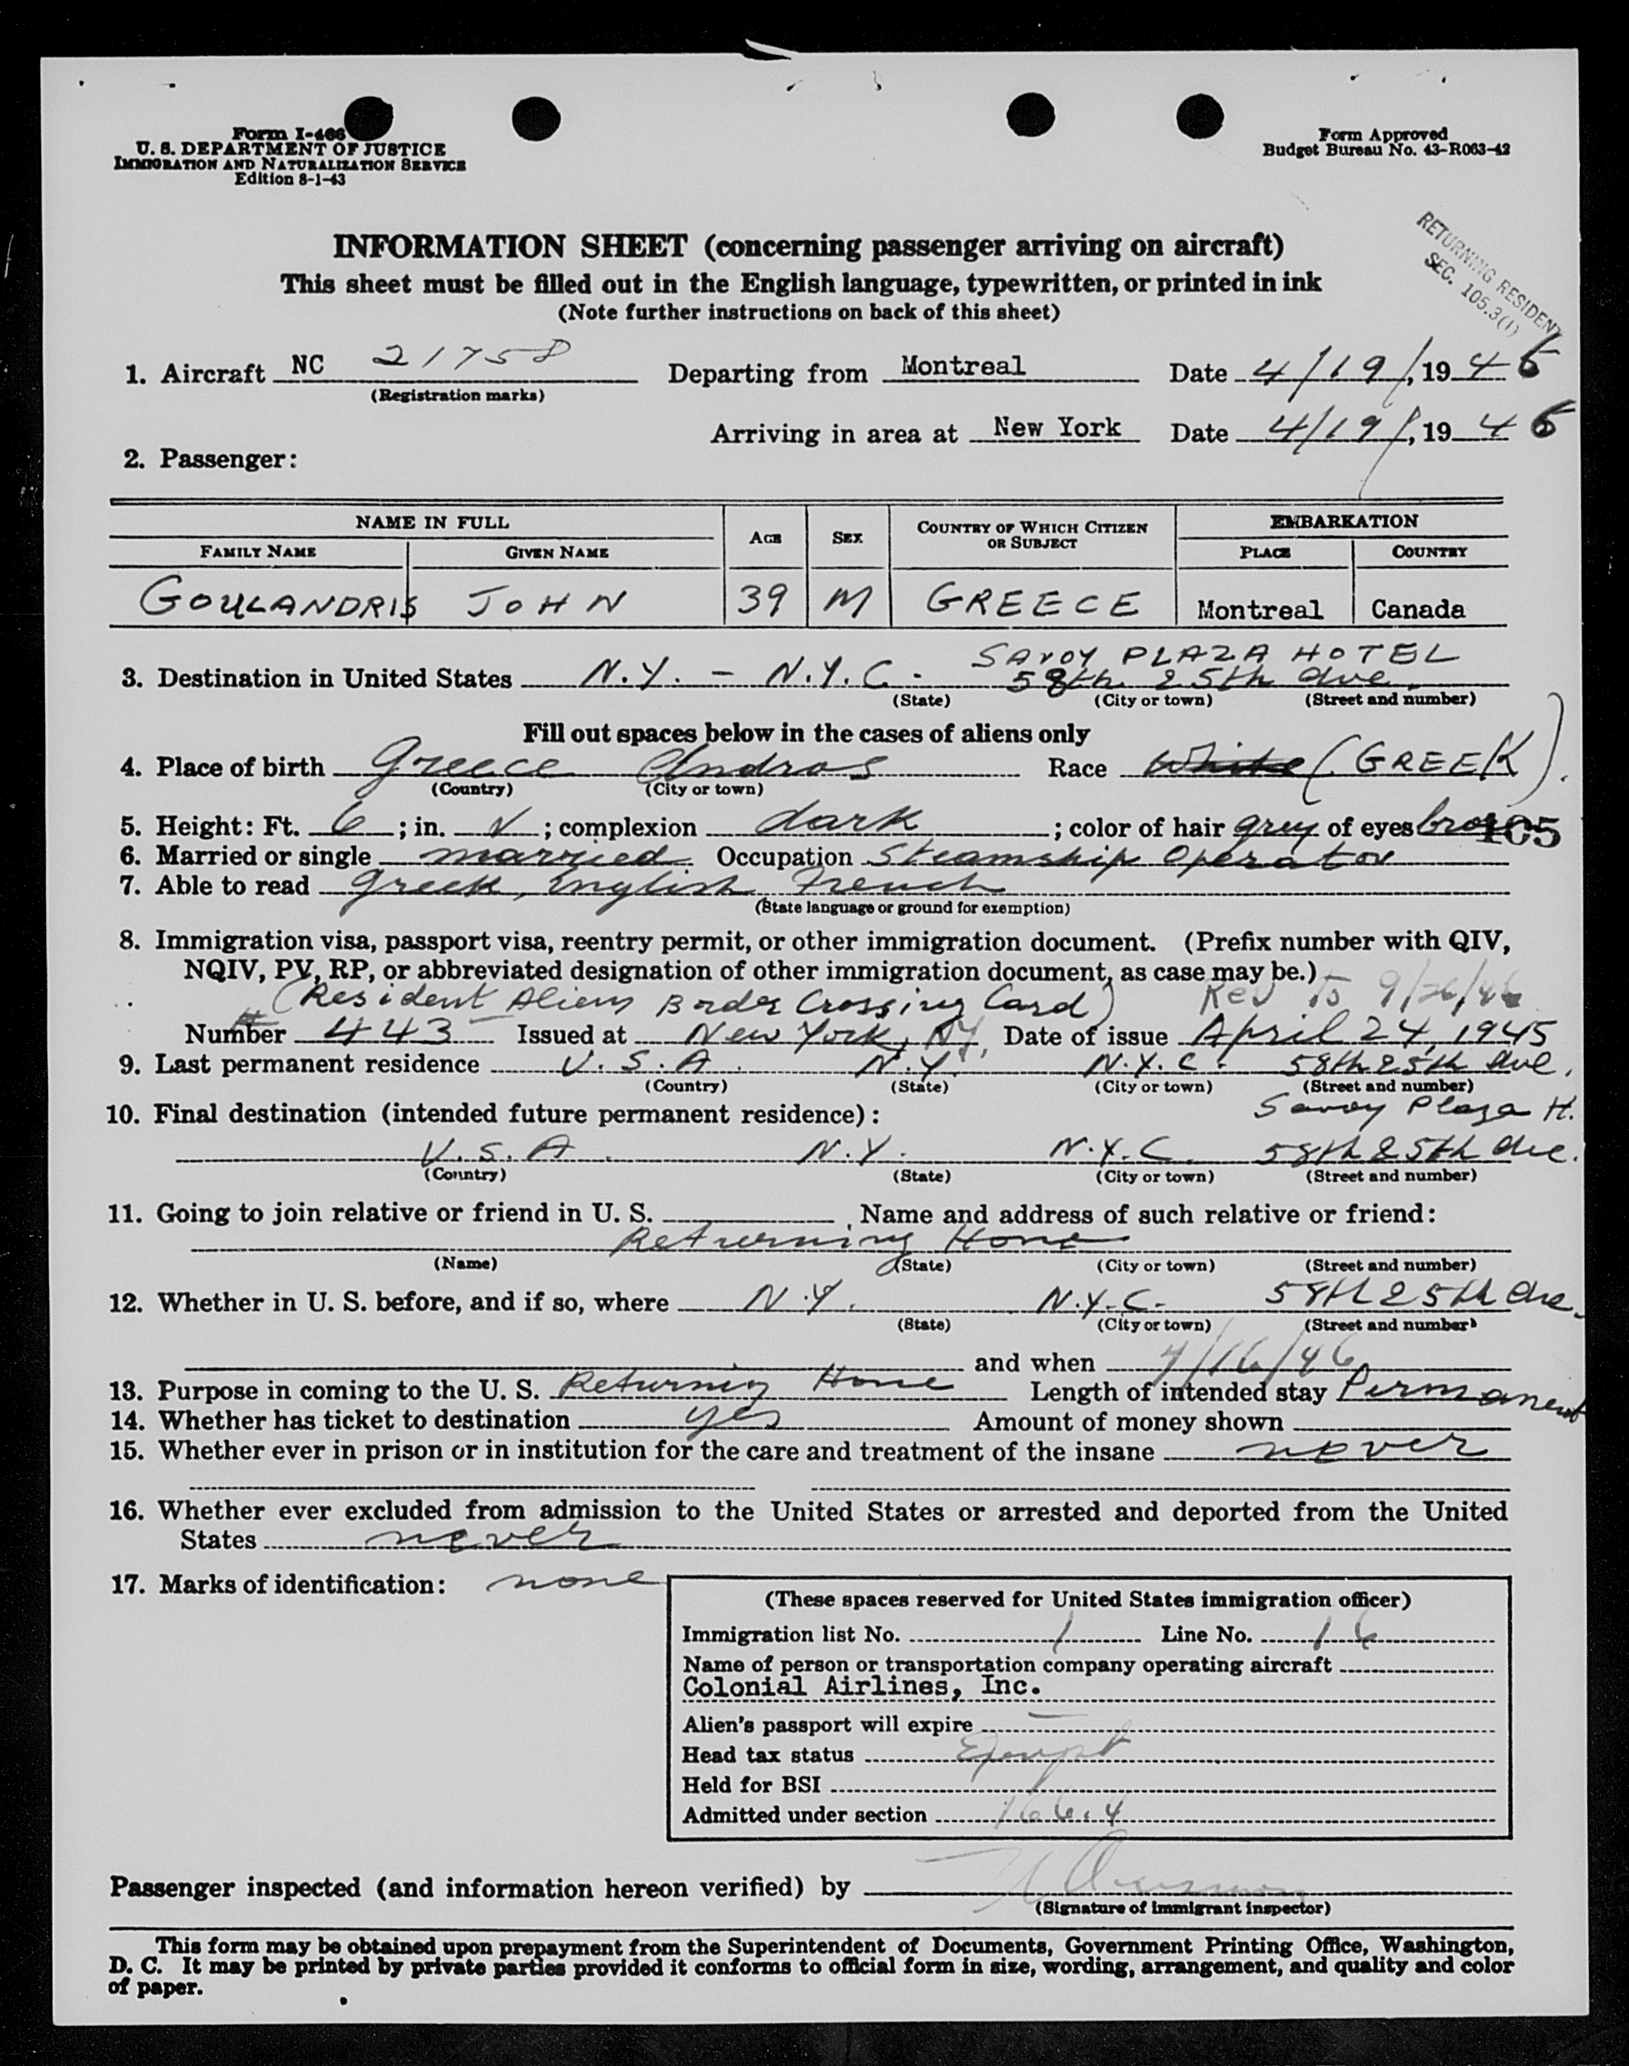 Form I-466
U. S. DEPARTMENT OF JUSTICE
IMMIGRATION AND NATURALIZATION SERVICE
Edition 8-1-43
Form Approved
Budget Bureau No. 43-R063-42
RETURNING RESIDENT
SEC. 105.3(1)
INFORMATION SHEET (concerning passenger arriving on aircraft)
This sheet must be filled out in the English language, typewritten, or printed in ink
(Note further instructions on back of this sheet)
1. Aircraft NC 21758 Departing from Montreal Date 4/19/, 1946
(Registration marks)
Arriving in area at New York Date 4/19/, 1946
2. Passenger:
NAME IN FULL AGE SEX COUNTRY OF WHICH CITIZEN OR SUBJECT EMBARKATION
FAMILY NAME GIVEN NAME PLACE COUNTRY
GOULANDRIS JOHN 39 M GREECE Montreal Canada
SAVOY PLAZA HOTEL
3. Destination in United States N.Y. - N.Y.C. 58th & 5th Ave.
(State) (City or town) (Street and number)
Fill out spaces below in the cases of aliens only
4. Place of birth Greece Andros Race White (GREEK)
(Country) (City or town)
5. Height: Ft. 6 ; in. √ ; complexion dark ; color of hair grey of eyes 105
6. Married or single married Occupation Steamship Operator
7. Able to read Greek, English French
(State language or ground for exemption)
8. Immigration visa, passport visa, reentry permit, or other immigration document. (Prefix number with QIV,
NQIV, PV, RP, or abbreviated designation of other immigration document, as case may be.)
(Resident Aliens Border Crossing Card) Rev to 9/26/46
# Number 443 Issued at New York, NY, Date of issue April 24, 1945
9. Last permanent residence U.S.A. N.Y. N.Y.C. 58th & 5th Ave.
(Country) (State) (City or town) (Street and number)
10. Final destination (intended future permanent residence): Savoy Plaza H.
U.S.A. N.Y. N.Y.C. 58th & 5th Ave.
(Country) (State) (City or town) (Street and number)
11. Going to join relative or friend in U. S. Name and address of such relative or friend:
Returning Home
(Name) (State) (City or town) (Street and number)
12. Whether in U. S. before, and if so, where N.Y. N.Y.C. 58th & 5th Ave.
(State) (City or town) (Street and number)
and when 4/16/46
13. Purpose in coming to the U. S. Returning Home Length of intended stay Permanent
14. Whether has ticket to destination yes Amount of money shown
15. Whether ever in prison or in institution for the care and treatment of the insane never
16. Whether ever excluded from admission to the United States or arrested and deported from the United
States never
17. Marks of identification: none
(These spaces reserved for United States immigration officer)
Immigration list No. 1 Line No. 16
Name of person or transportation company operating aircraft
Colonial Airlines, Inc.
Alien's passport will expire —
Head tax status Exempt
Held for BSI
Admitted under section 166.4
Passenger inspected (and information hereon verified) by
(Signature of immigrant inspector)
This form may be obtained upon prepayment from the Superintendent of Documents, Government Printing Office, Washington,
D. C. It may be printed by private parties provided it conforms to official form in size, wording, arrangement, and quality and color
of paper.